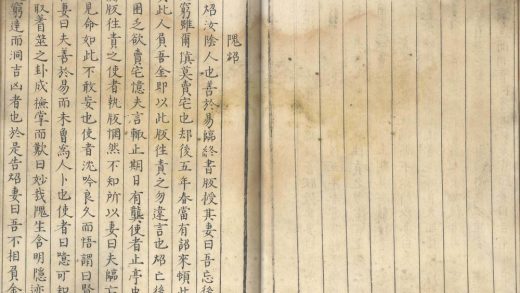 隗炤
炤汝陰人也善於易臨終書版授其妻曰吾忘後
窮雖爾慎莫賣宅也却後五年春當有詔來頓此
此人負吾金即以此版往責之勿違言也炤亡後
困乏欲賣宅憶夫言輒止期日有龔使者止亭中
版往責之使者執版惘然不知所以妻曰夫臨亡
見命如此不敢妄也使者沈吟良久而悟謂曰賢
妻曰夫善於易而未曾為人卜也使者曰噫可知
取蓍筮之卦成撫掌而歎曰妙哉隗生含明隱迹
窮達而洞吉凶者也於是告炤妻曰吾不相負金